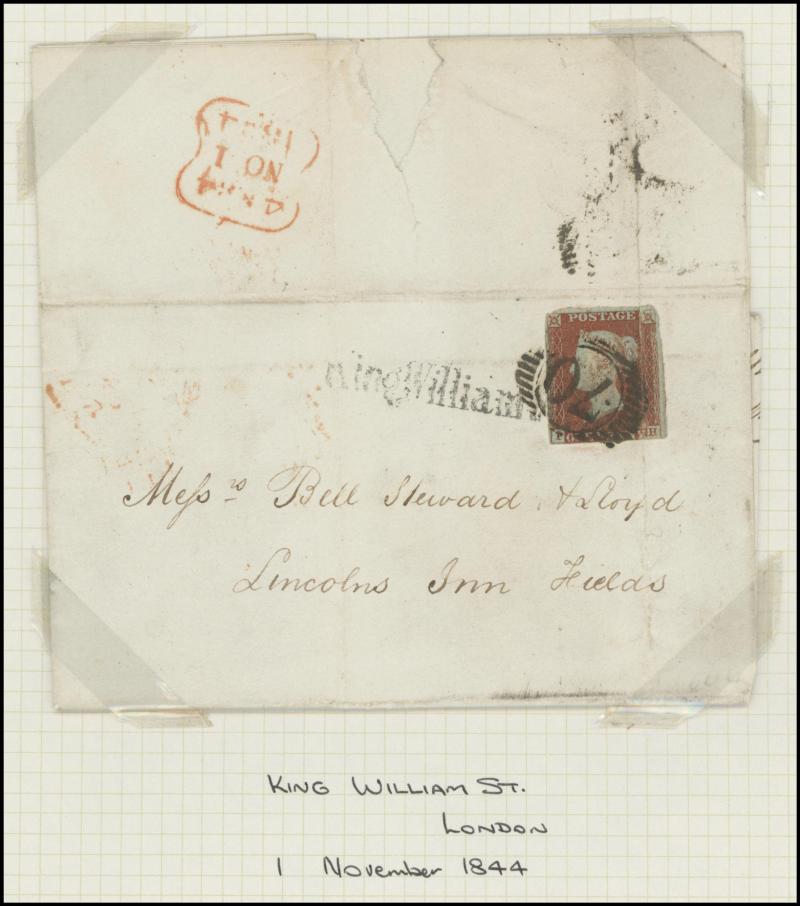 NO 1
POSTAGE
King William
Messrs Bell Steward & Lloyd
Lincolns Inn Fields
KING WILLIAM ST.
LONDON
1 November 1844